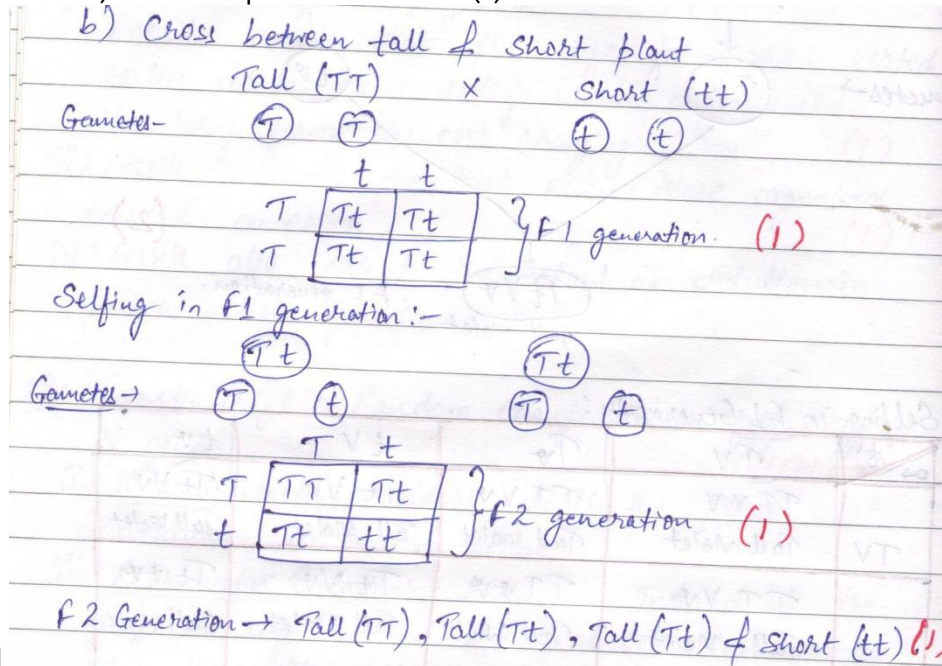 b) Cross between tall & short plant
Tall (TT) × Short (tt)
Gametes- T T t t
t t
T Tt Tt
T Tt Tt } F1 generation. (1)
Selfing in F1 generation:-
Tt Tt
Gametes → T t T t
T t
T TT Tt
t Tt tt } F2 generation (1)
F2 Generation → Tall (TT), Tall (Tt), Tall (Tt) & short (tt) (1)